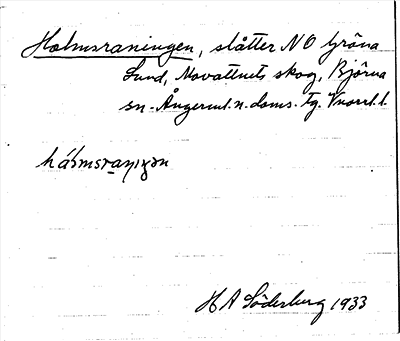 Holmsraningen, slåtter NO Gröna
Sund, Movattnets skog, Björna
sn. Ångerml. n. doms. tg. Vnorrl. l.
hɔ́ɔmsraniŋən
H A Söderberg 1933